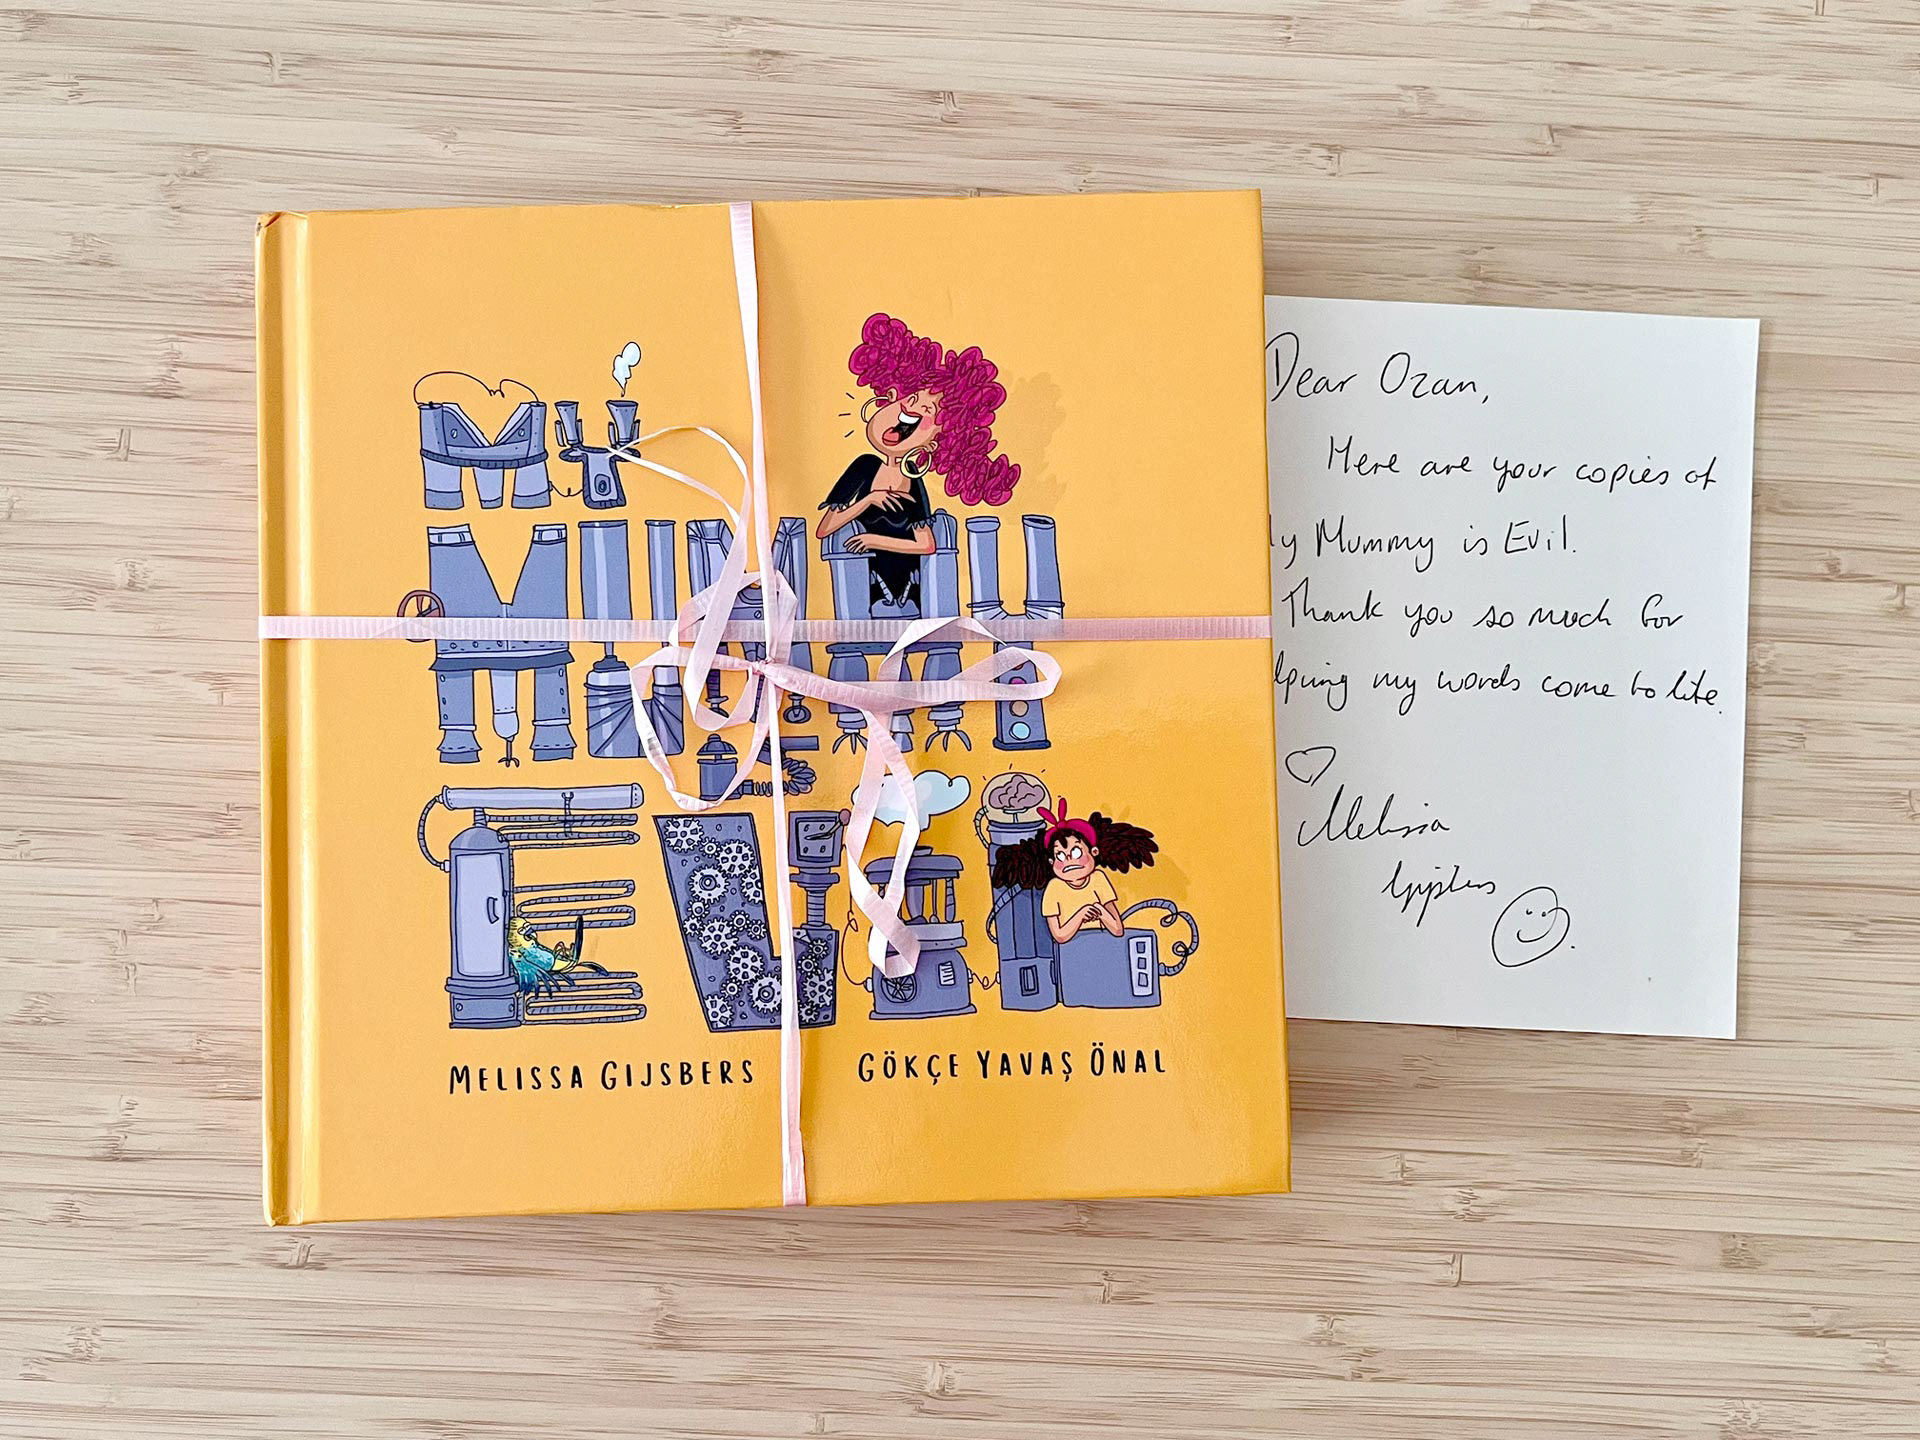 MY
MUMMY
IS
EVIL
MELISSA GIJSBERS
GÖKÇE YAVAŞ ÖNAL
Dear Ozan,
Here are your copies of
y Mummy is Evil.
Thank you so much for
lping my words come to life.
Melissa
Gijsbers